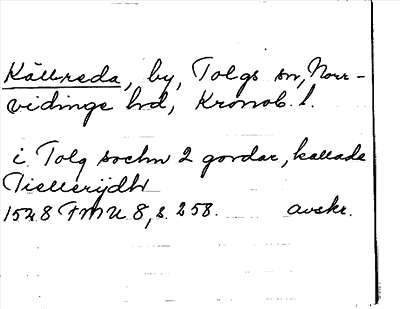 Källreda, by, Tolgs sn, Norr-
vidinge hd, Kronob. l.
i Tolg sochn 2 gordar, kallade
Tiellerijdh
1548 FMU 8, s. 258. avskr.